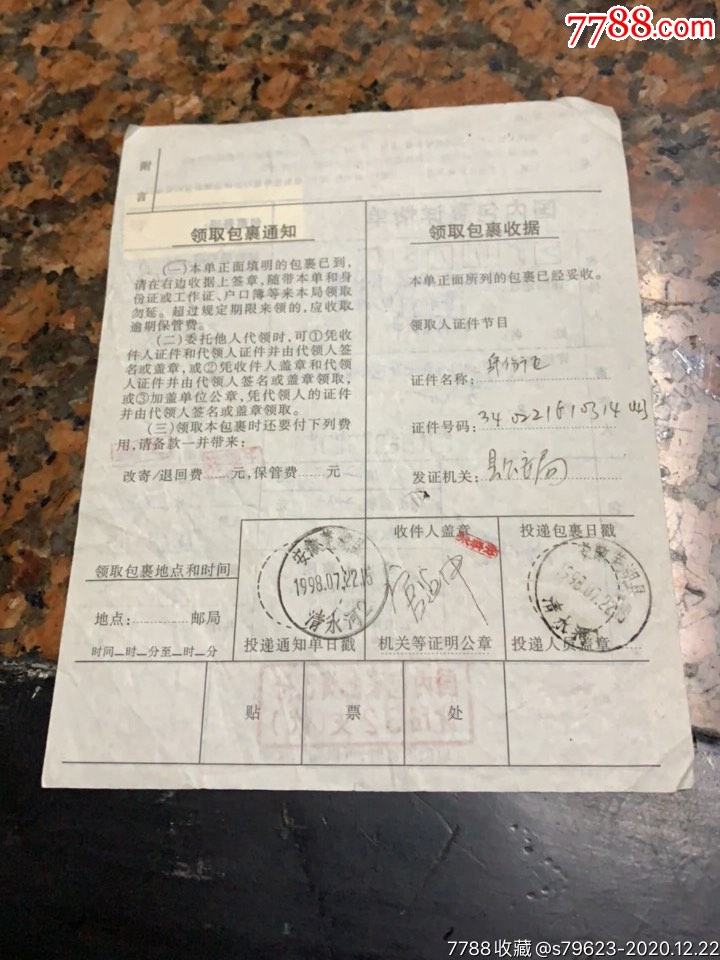 7788.com
附
言
领取包裹通知
(一)本单正面填明的包裹已到,
请在右边收据上签章,随带本单和身
份证或工作证、户口簿等来本局领取
勿延。超过规定期限来领的,应收取
逾期保管费。
(二)委托他人代领时,可①凭收
件人证件和代领人证件并由代领人签
名或盖章,或②凭收件人盖章和代领
人证件并由代领人签名或盖章领取,
或③加盖单位公章,凭代领人的证件
并由代领人签名或盖章领取。
(三)领取本包裹时还要付下列费
用,请备款一并带来:
改寄/退回费......元,保管费......元
领取包裹收据
本单正面所列的包裹已经妥收。
领取人证件节目
证件名称:身份证
证件号码:
发证机关:县公安局
领取包裹地点和时间
地点:......邮局
时间—时—分至—时—分
安徽芜湖县
1998.07.22.15
清水河2
投递通知单日戳
收件人盖章
机关等证明公章
投递包裹日戳
安徽芜湖县
1998.07.22
清水河
投递人员盖章
贴 票 处
7788收藏@s79623-2020.12.22